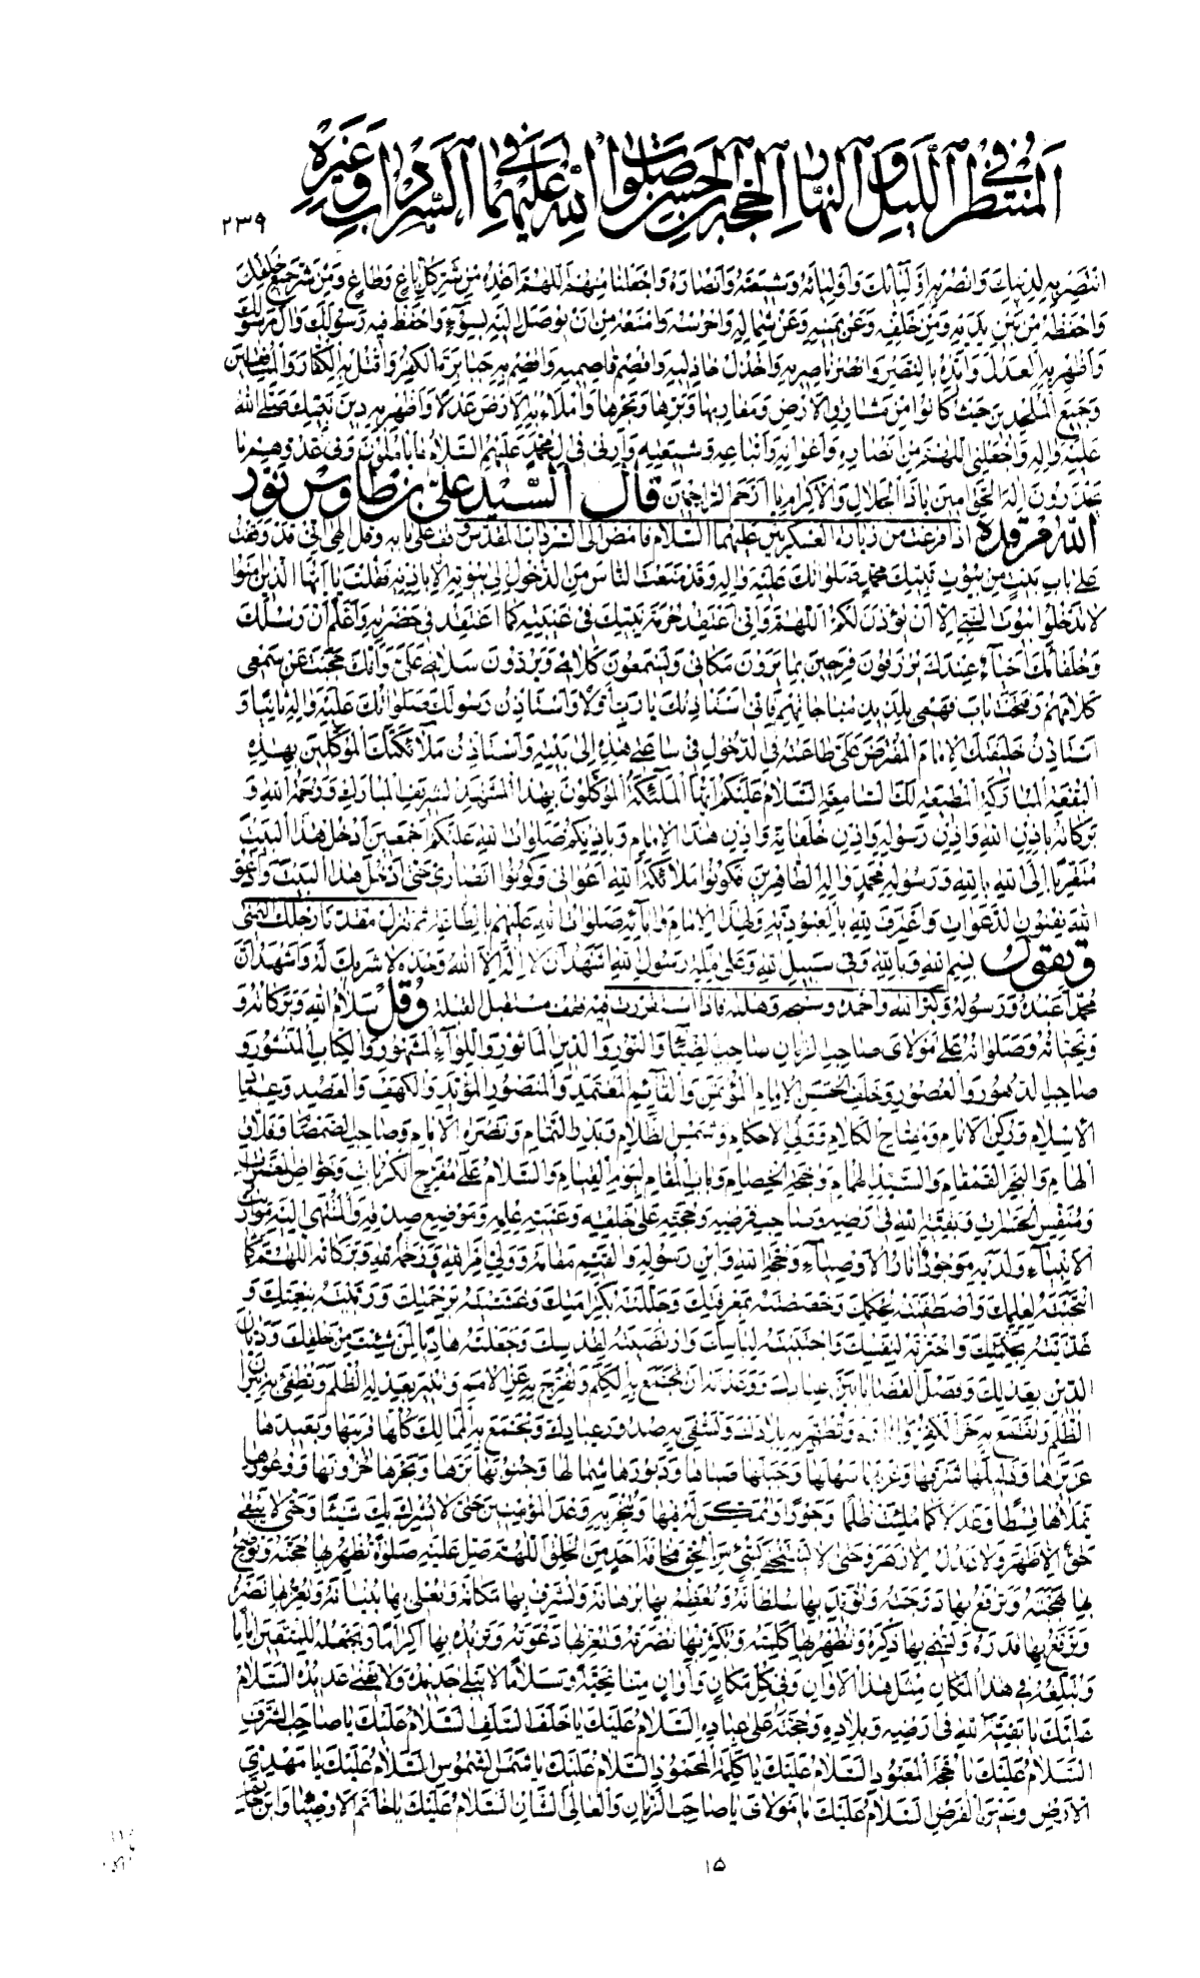 المنتظر في الليل والنهار الحجة بن الحسن صلوات الله عليهما في السرداب وغيره
٢٣٩
انتصر به لدينك وانصر به اوليائك واوليائه وشيعته وانصاره واجعلنا منهم اللهم اعذه من شر كل باغ وطاغ ومن شر جميع خلقك
واحفظه من بين يديه ومن خلفه وعن يمينه وعن شماله واحرسه وامنعه من ان يوصل اليه بسوء واحفظ فيه رسولك وآل رسولك
واظهر به العدل وايده بالنصر وانصر ناصريه واخذل خاذليه واقصم قاصميه واقصم به جبابرة الكفر واقتل به الكفار والمنافقين
وجميع الملحدين حيث كانوا من مشارق الارض ومغاربها وبرها وبحرها واملاء به الارض عدلا واظهر به دين نبيك صلى الله
عليه واله واجعلني اللهم من انصاره واعوانه واتباعه وشيعته وارني في آل محمد عليهم السلام ما ياملون وفي عدوهم ما
يحذرون اله الحق امين ياذا الجلال والاكرام يا ارحم الراحمين قال السيد علي بن طاوس نور
الله مرقده اذا فرغت من زيارة العسكريين عليهما السلام فامض الى السرداب المقدس وقف على بابه وقل الهي اني قد وقفت
على باب بيت من بيوت نبيك محمد صلواتك عليه واله وقد منعت الناس من الدخول الى بيوته الا باذنه فقلت يا ايها الذين امنوا
لا تدخلوا بيوت النبي الا ان يؤذن لكم اللهم واني اعتقد حرمة نبيك في غيبته كما اعتقد في حضرته واعلم ان رسلك
وخلفائك احياء عندك يرزقون فرحين يرون مكاني ويسمعون كلامي ويردون سلامي علي وانك حجبت عن سمعي
كلامهم وفتحت باب فهمي بلذيذ مناجاتهم فاني استاذنك يا رب اولا واستاذن رسولك صلواتك عليه واله ثانيا و
استاذن خليفتك الامام المفترض علي طاعته في الدخول في ساعتي هذه الى بيته واستاذن ملائكتك الموكلين بهذه
البقعة المباركة المطيعة لك السامعة السلام عليكم ايها الملائكة الموكلون بهذا المشهد الشريف المبارك ورحمة الله و
بركاته باذن الله واذن رسوله واذن خلفائه واذن هذا الامام وباذنكم صلوات الله عليكم اجمعين ادخل هذا البيت
متقربا الى الله بالله ورسوله محمد واله الطاهرين فكونوا ملائكة الله اعواني وكونوا انصاري حتى ادخل هذا البيت وادعو
الله بفنون الدعوات واعترف لله بالعبودية ولهذا الامام وابائه صلوات الله عليهم بالطاعة ثم تنزل مقدما رجلك اليمنى
وتقول بسم الله وبالله وفي سبيل الله وعلى ملة رسول الله اشهد ان لا اله الا الله وحده لا شريك له واشهد ان
محمدا عبده ورسوله وكبر الله واحمده وسبحه وهلله فاذا استقررت فيه فقف مستقبل القبلة وقل سلام الله وبركاته و
وتحياته وصلواته على مولاي صاحب الزمان صاحب الضياء والنور والدين الماثور واللواء المشهور والكتاب المنشور و
صاحب الدهور والعصور وخلف الحسن الامام المؤتمن والقائم المعتمد والمنصور المؤيد والكهف والعضد وعماد
الاسلام وركن الانام ومفتاح الكلام وولي الاحكام وشمس الظلام وبدر التمام ونضرة الايام وصاحب الصمصام وفلاق
الهام والبحر القمقام والسيد الهمام وحجة الخصام وباب المقام ليوم القيام والسلام على مفرج الكربات وخواض الغمرات
ومنفس الحسرات وبقية الله في ارضه وصاحب فرضه وحجته على خلقه وعيبة علمه وموضع صدقه والمنتهى اليه مواريث
الانبياء ولديه موجود اثار الاوصياء وحجة الله وابن رسوله والقيم مقامه وولي امر الله ورحمة الله وبركاته اللهم كما
انتجبته لعلمك واصطفيته لحكمك وخصصته بمعرفتك وجللته بكرامتك وغشيته برحمتك وربيته بنعمتك و
غذيته بحكمتك واخترته لنفسك واجتبيته لباسك وارتضيته لقدسك وجعلته هاديا لمن شئت من خلقك وديان
الدين بعدلك وفصل القضايا بين عبادك ووعدته ان تجمع به الكلم وتفرج به عن الامم وتنير بعدله الظلم وتطفئ به نيران
الظلم وتقمع به حر الكفر واثاره وتطهر به بلادك وتشفي به صدور عبادك وتجمع به الممالك كلها قريبها وبعيدها
عزيزها وذليلها شرقها وغربها سهلها وجبلها صباها ودبورها شمالها وجنوبها برها وبحرها حزونها ووعورها
يملأها قسطا وعدلا كما ملئت ظلما وجورا وتمكن له فيها وتنجز به وعد المؤمنين حتى لا يشرك بك شيئا وحتى لا يبقى
حق الا ظهر ولا عدل الا زهر وحتى لا يستخفي بشيء من الحق مخافة احد من الخلق اللهم صل عليه صلوة تظهر بها حجته وتوضح
بها بهجته وترفع بها درجته وتؤيد بها سلطانه وتعظم بها برهانه وتشرف بها مكانه وتعلي بها بنيانه وتعز بها نصره
وترفع بها قدره وتسمي بها ذكره وتظهر بها كلمته وتكثر بها نصرته وتعز بها دعوته وتزيده بها اكراما وتجعله للمتقين اماما
وتبلغه في هذا المكان مثل هذا الاوان وفي كل مكان واوان منا تحية وسلاما لا يبلى جديده ولا يفنى عديده السلام
عليك يا بقية الله في ارضه وبلاده وحجته على عباده السلام عليك يا خلف السلف السلام عليك يا صاحب الشرف
السلام عليك يا حجة المعبود السلام عليك يا كلمة المحمود السلام عليك يا شمس الشموس السلام عليك يا مهدي
الارض ومبين الفرض السلام عليك يا مولاي يا صاحب الزمان والعالي الشان السلام عليك يا خاتم الاوصياء وابن
١٥